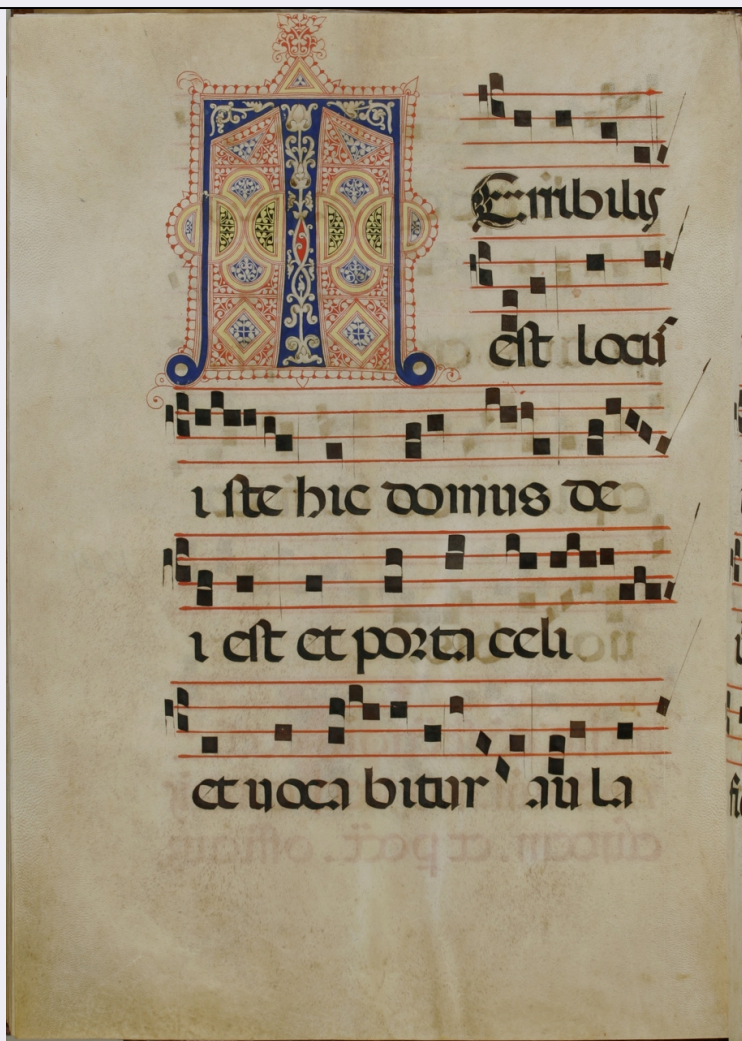 TErribilis
est locus
iste hic domus de
i est et porta celi
et uocabitur aula